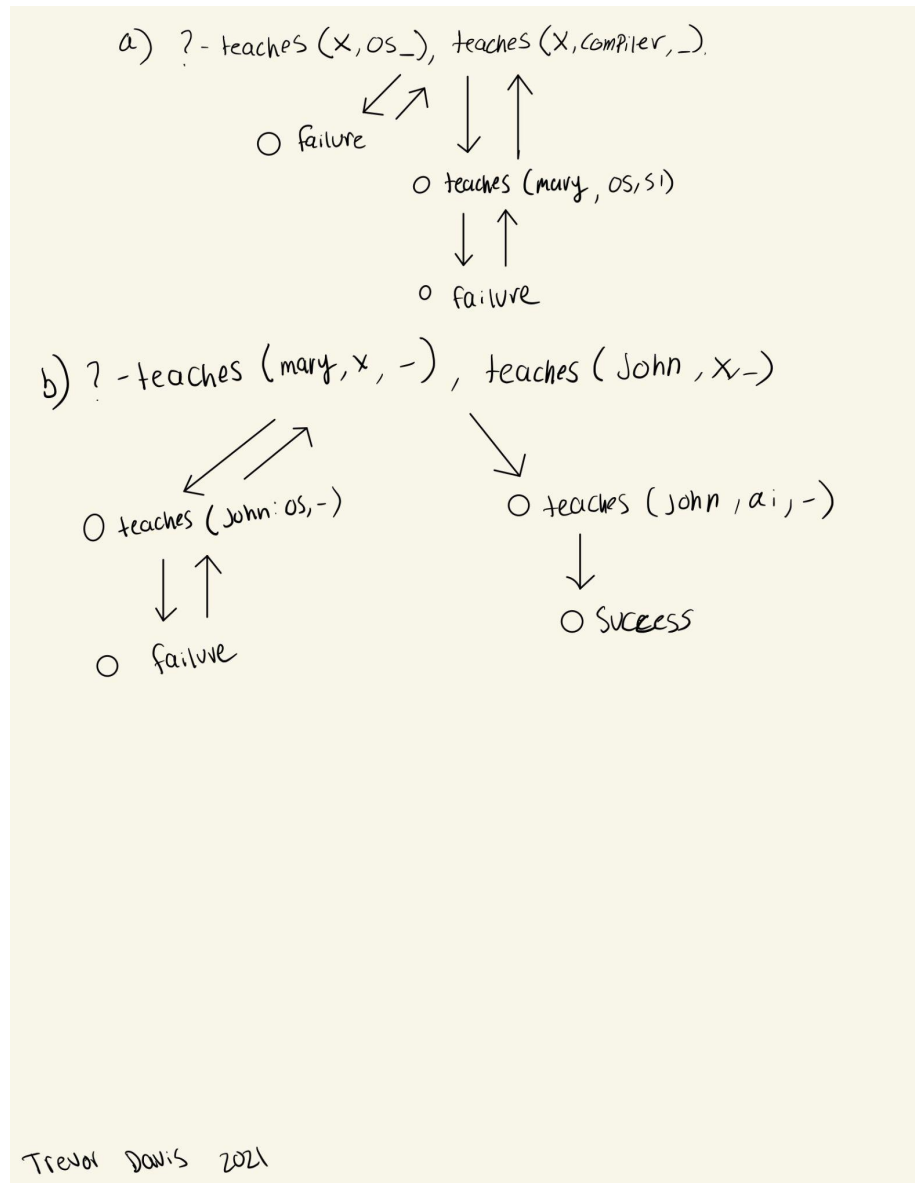 a) ?- teaches (X, OS_), teaches (X, compiler, _).
failure
teaches (mary, OS, S1)
failure
b) ? -teaches (mary, x, -), teaches (John, x, -)
teaches (John: OS, -)
teaches (John, ai, -)
failure
Success
Trevor Davis 2021